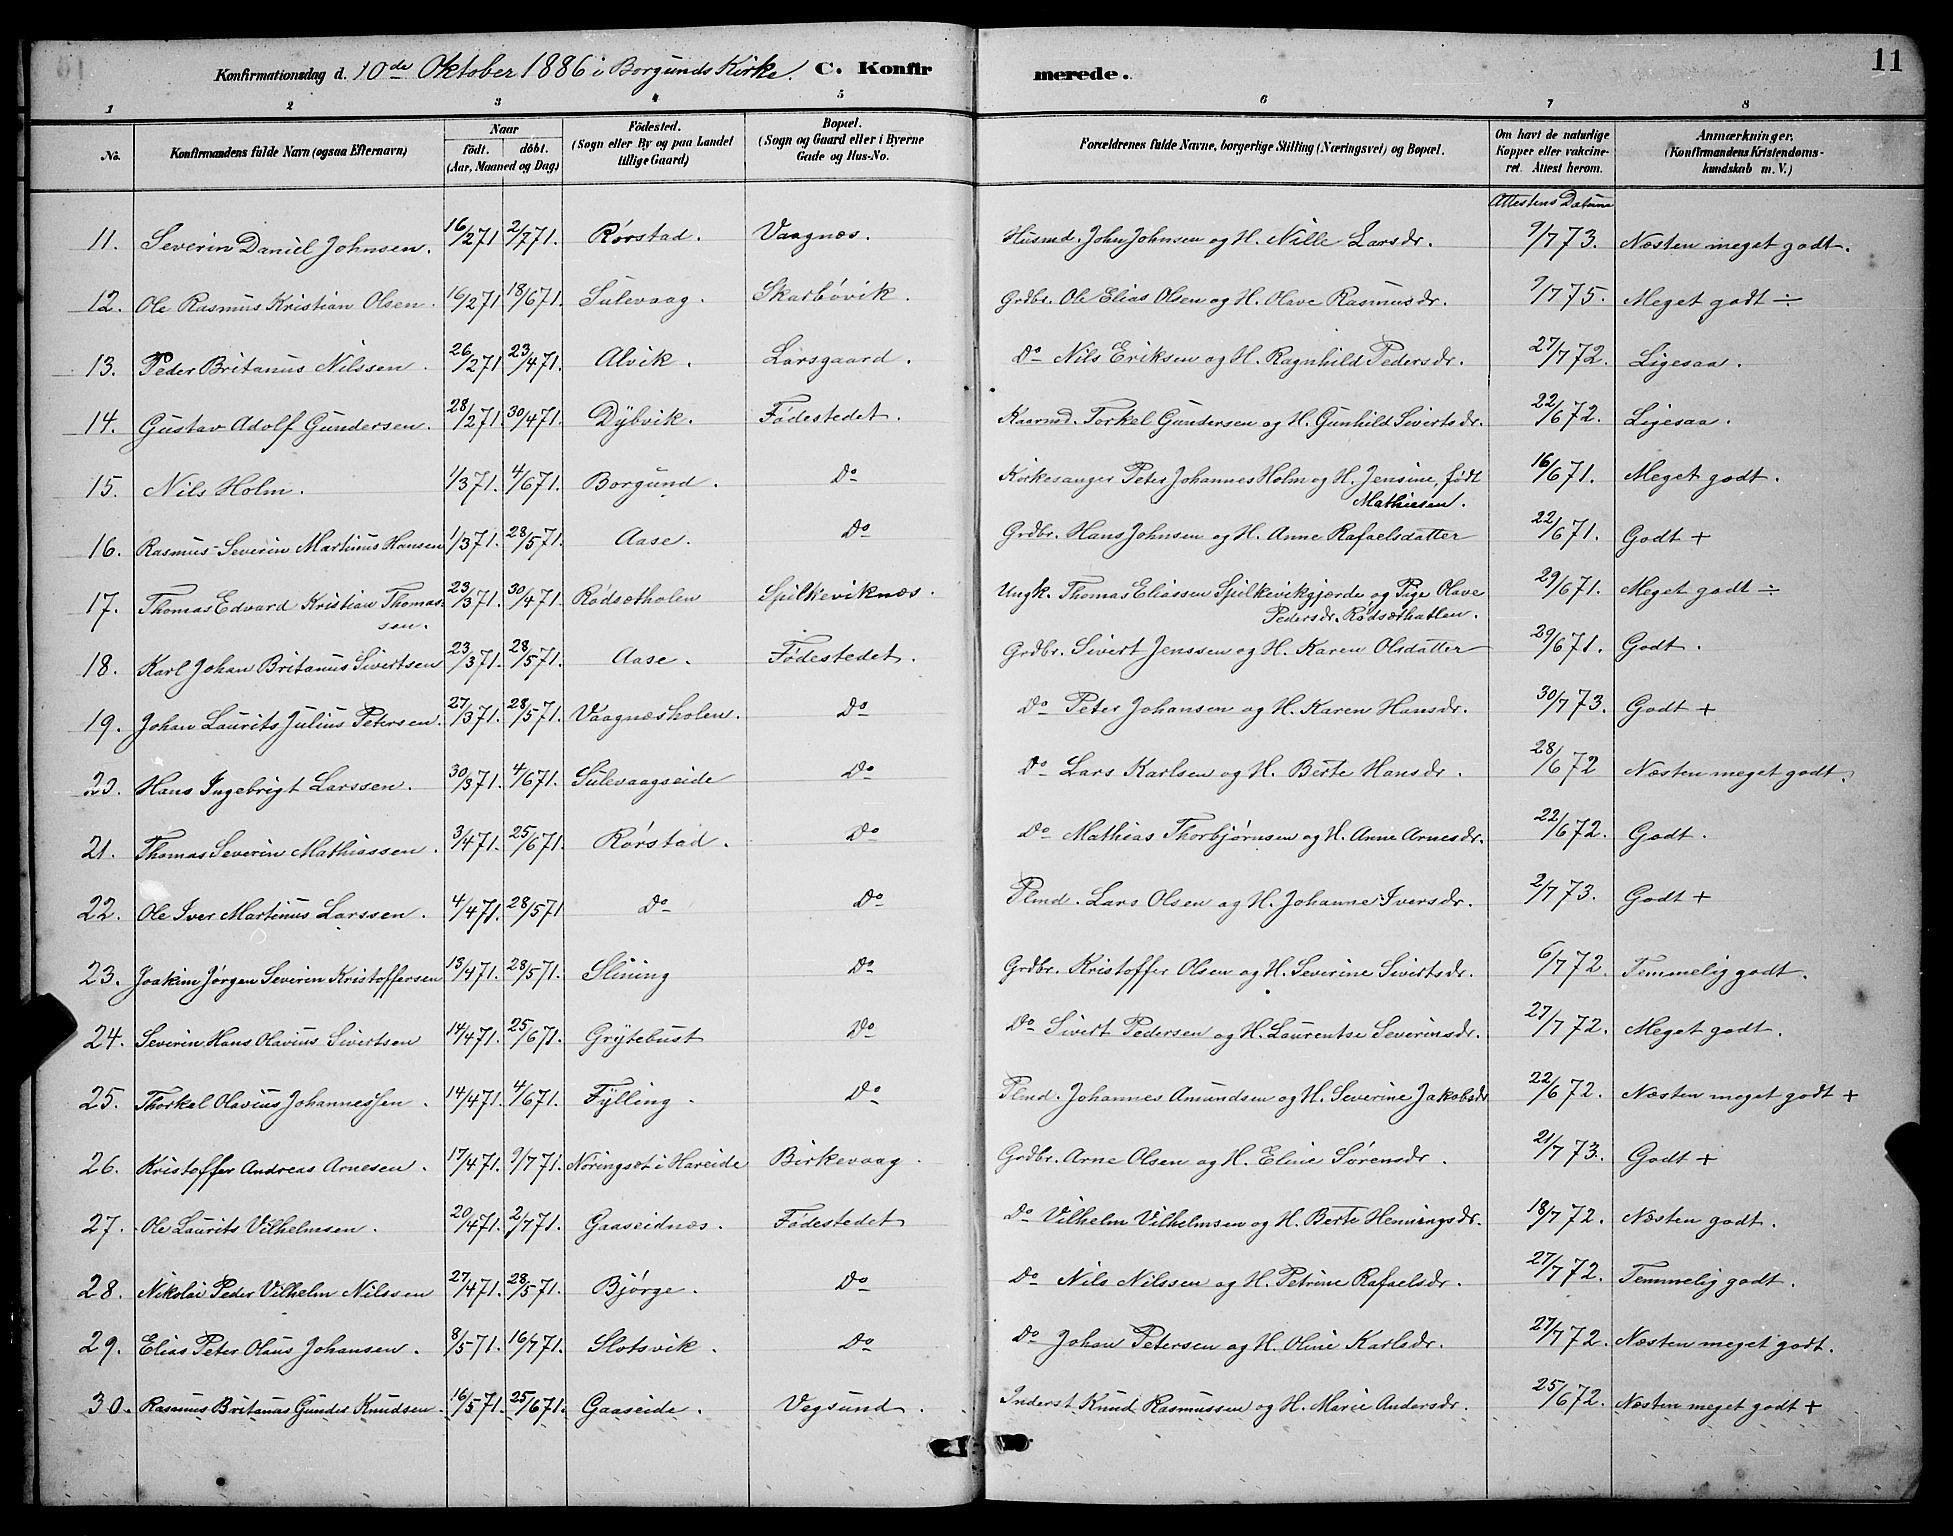 Konfirmationsdag d. 10de Oktober 1886 i Borgunds Kirke. C. Konfirmerede. 11
1 2 3 4 5 6 7 8
No. Konfirmandens fulde Navn (ogsaa Efternavn) Naar født. døbt. (Aar, Maaned og Dag) Födested. (Sogn eller By og paa Landet tillige Gaard) Bopæl. (Sogn og Gaard eller i Byerne Gade og Hus-No. Forældrenes fulde Navne, borgerlige Stilling (Næringsvei) og Bopæl. Om havt de naturlige Kopper eller vakcineret. Attest herom. Anmærkninger. (Konfirmandens Kristendomskundskab m. V.)
Attestens Datum
11. Severin Daniel Johnsen. 16/2 71 2/7 71. Rørstad. Vaagnæs. Husmd. John Johnsen og H. Nille Larsdr. 9/7 73. Næsten meget godt.
12. Ole Rasmus Kristian Olsen. 16/2 71 18/6 71. Sulevaag. Skarbøvik. Grdbr. Ole Elias Olsen og H. Olave Rasmusdr. 9/7 75. Meget godt ÷
13. Peder Britanus Nilssen. 26/2 71 23/4 71. Alvik. Larsgaard. Do Nils Eriksen og H. Ragnhild Pedersdr. 27/7 72. Ligesaa.
14. Gustav Adolf Gundersen. 28/2 71. 30/4 71. Dybvik. Fødestedet. Kaarmd. Torkel Gundersen og H. Gunhild Sivertsdr. 22/6 72. Ligesaa.
15. Nils Holm. 1/3 71. 4/6 71. Borgund. Do Kirkesanger Peter Johannes Holm og H. Jensine, født Mathiesen. 16/6 71. Meget godt.
16. Rasmus Severin Martinus Hansen 1/3 71. 28/5 71. Aase. Do Grdbr. Hans Johnsen og H. Anne Rafaelsdatter 22/6 71. Godt +
17. Thomas Edvard Kristian Thomassen. 23/3 71. 30/4 71. Rødsætholen Spilkeviknæs. Ungk. Thomas Eliassen Spilkevikgjærde og Pige Olave Pedersdr. Rødsæthatlen. 29/6 71. Meget godt ÷
18. Karl Johan Britanus Sivertsen 23/3 71. 28/5 71. Aase. Fødestedet. Grdbr. Sivert Jenssen og H. Karen Olsdatter 29/6 71. Godt.
19. Johan Laurits Julius Petersen. 27/3 71. 28/5 71. Vaagnæsholen. Do Do Peter Johansen og H. Karen Hansdr. 30/7 73. Godt +
20. Hans Ingebrigt Larssen. 30/3 71. 4/6 71. Sulevaagseide Do Do Lars Karlsen og H. Berte Hansdr. 28/6 72 Næsten meget godt.
21. Thomas Severin Mathiassen. 3/4 71. 25/6 71. Rørstad. Do Do Mathias Thorbjørnsen og H. Anne Arnesdr. 22/6 72. Godt.
22. Ole Iver Martinus Larssen. 4/4 71. 28/5 71 Do Do Plmd. Lars Olsen og H. Johanne Iversdr. 2/7 73. Godt +
23. Joakim Jørgen Severin Kristoffersen 13/4 71. 28/5 71. Slining Do Grdbr. Kristoffer Olsen og H. Severine Sivertsdr. 6/7 72 Temmelig godt.
24. Severin Hans Olavius Sivertsen 14/4 71. 25/6 71. Grytebust Do Do Sivert Pedersen og H. Laurentse Severinsdr. 27/7 72. Meget godt.
25. Thorkel Olavius Johannessen. 14/4 71. 4/6 71. Fylling. Do Plmd. Johannes Amundsen og H. Severine Jakobsdr 22/6 72. Næsten meget godt +
26. Kristoffer Andreas Arnesen. 17/4 71. 9/7 71. Noringset i Hareide Birkevaag. Grdbr. Arne Olsen og H. Eline Sørensdr. 21/7 73. Godt +
27. Ole Laurits Vilhelmsen. 20/4 71. 2/7 71. Gaaseidnæs. Fødestedet Do Vilhelm Vilhelmsen og H. Berte Henningsdr. 18/7 72. Næsten godt.
28. Nikolai Peder Vilhelm Nilssen 27/4 71. 28/5 71. Bjørge. Do Do Nils Nilssen og H. Petrine Rafaelsdr. 27/7 72. Temmelig godt.
29. Elias Peter Olaus Johansen. 8/5 71. 16/7 71. Slotsvik. Do Do Johan Petersen og H. Oline Karlsdr. 27/7 72. Næsten meget godt.
30. Rasmus Britanus Gunder Knudsen. 16/5 71. 25/6 71. Gaaseide. Vegsund. Inderst Knud Rasmussen og H. Marie Andersdr. 25/6 72. Næsten meget godt +